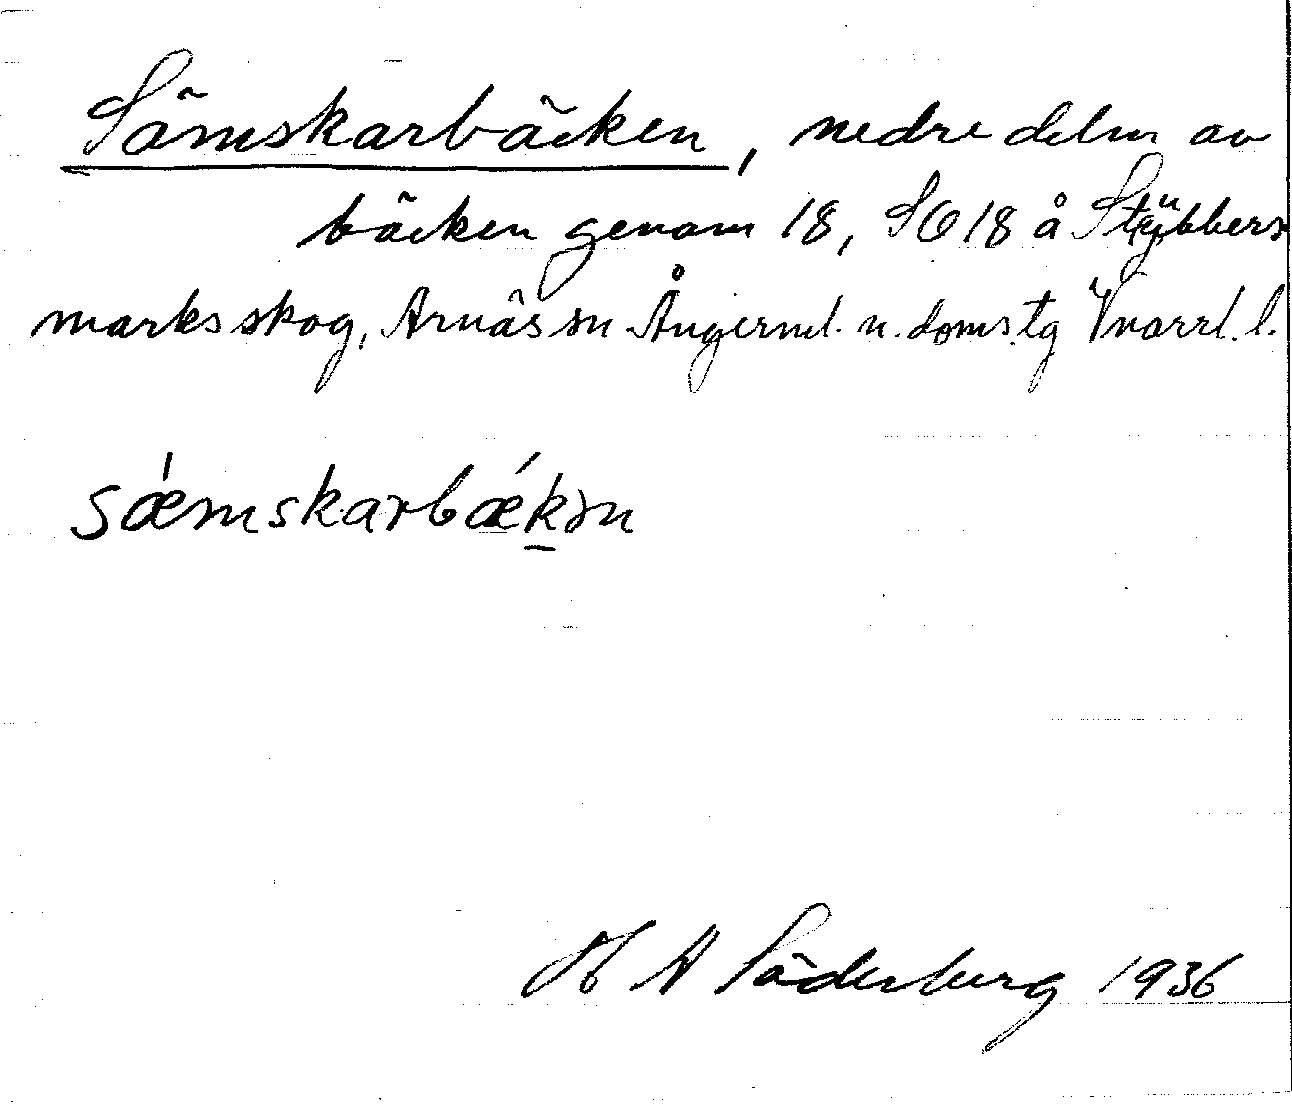 Sämskarbäcken, nedre delen av
bäcken genom 18, SO 18 å Stybbers
marksskog, Arnäs sn Ångerml. n. doms. tg Vnorrl. l.
sǽmskarbǽkən
H A Söderberg 1936